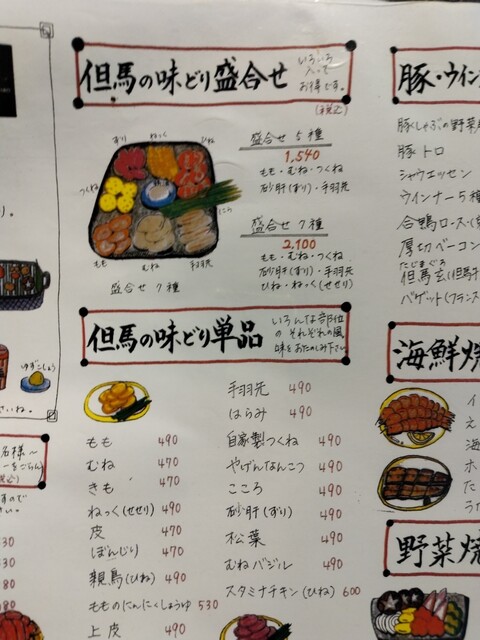 但馬の味どり盛合せ
いろいろ
入って
お得です。
(税込)
すり
ねっく
ひね
つくね
にら
もも
むね
手羽先
盛合せ 7種
盛合せ 5種
1,540
もも・むね・つくね
砂肝(ずり)・手羽先
盛合せ 7種
2,100
もも・むね・つくね
砂肝(ずり)・手羽先
ひね・ねっく(せせり)
但馬の味どり単品
いろんな部位
の それぞれの風
味をおたのしみ下さい。
もも 490
むね 470
きも 470
ねっく(せせり) 490
皮 470
ぼんじり 470
親鳥(ひね) 490
もものにんにくしょうゆ 530
上皮 490
手羽先 490
はらみ 490
自家製つくね 490
やげんなんこつ 490
こころ 490
砂肝(ずり) 490
松葉 490
むねバジル 490
スタミナチキン(ひね) 600
豚・ウイン
豚しゃぶの野菜
豚トロ
シャウエッセン
ウインナー5種
合鴨ロース
厚切ベーコン
たじまぐろ
但馬玄(但馬牛
バゲット(フランス
海鮮焼
イ
え
海
ホ
た
うた
野菜焼
ゆずこしょう
名様〜